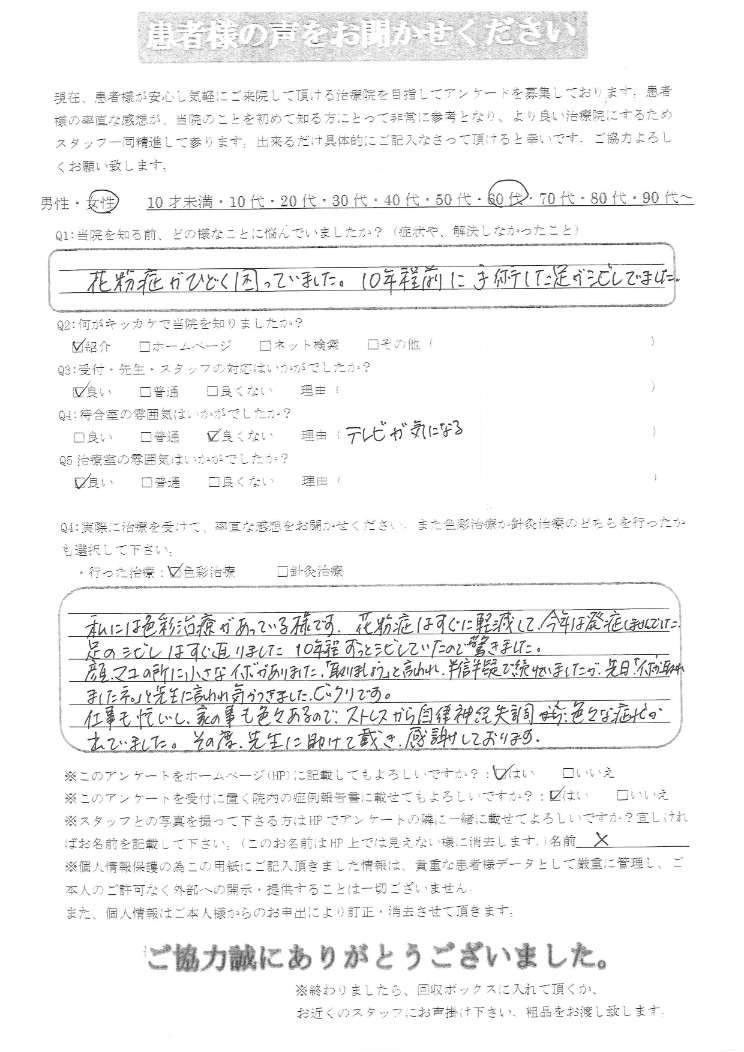 患者様の声をお聞かせください
現在、患者様が安心し気軽にご来院して頂ける治療院を目指してアンケートを募集しております。患者
様の率直な感想が、当院のことを初めて知る方にとって非常に参考となり、より良い治療院にするため
スタッフ一同精進して参ります。出来るだけ具体的にご記入なさって頂けると幸いです。ご協力よろし
くお願い致します。
男性・女性　10才未満・10代・20代・30代・40代・50代・60代・70代・80代・90代～
Q1:当院を知る前、どの様なことに悩んでいましたか？（症状や、解決しなかったこと）
花粉症がひどく困っていました。10年程前に手術した足がシビレてました。
Q2:何がキッカケで当院を知りましたか？
☑紹介　□ホームページ　□ネット検索　□その他（　）
Q3:受付・先生・スタッフの対応はいかがでしたか？
☑良い　□普通　□良くない　理由（　）
Q4:待合室の雰囲気はいかがでしたか？
□良い　□普通　☑良くない　理由（テレビが気になる　）
Q5治療室の雰囲気はいかがでしたか？
☑良い　□普通　□良くない　理由（　）
Q4:実際に治療を受けて、率直な感想をお聞かせください。また色彩治療か針灸治療のどちらを行ったか
も選択して下さい。
・行った治療：☑色彩治療　□針灸治療
私には色彩治療があっている様です。花粉症はすぐに軽減して、今年は発症しませんでした。
足のシビレはすぐ直りました 10年程ずっとシビレていたので驚きました。
顔、マユの所に小さなイボがありました、「取りましょう」と言われ、半信半疑で続けていましたが、先日「イボが取れ
ましたネ」と先生に言われ気がつきました、ビックリです。
仕事も忙いし、家の事も色々あるので、ストレスから自律神経失調 から 色々な症状が
出ていました。その度、先生に助けて戴き、感謝しております。
※このアンケートをホームページ(HP)に記載してもよろしいですか？：☑はい　□いいえ
※このアンケートを受付に置く院内の症例報告書に載せてもよろしいですか？：☑はい　□いいえ
※スタッフとの写真を撮って下さる方はHPでアンケートの隣に一緒に載せてよろしいですか？宜しけれ
ばお名前を記載して下さい。（このお名前はHP上では見えない様に消去します。）名前　×
※個人情報保護の為この用紙にご記入頂きました情報は、貴重な患者様データとして厳重に管理し、ご
本人のご許可なく外部への開示・提供することは一切ございません。
また、個人情報はご本人様からのお申出により訂正・消去させて頂きます。
ご協力誠にありがとうございました。
※終わりましたら、回収ボックスに入れて頂くか、
お近くのスタッフにお声掛け下さい。粗品をお渡し致します。